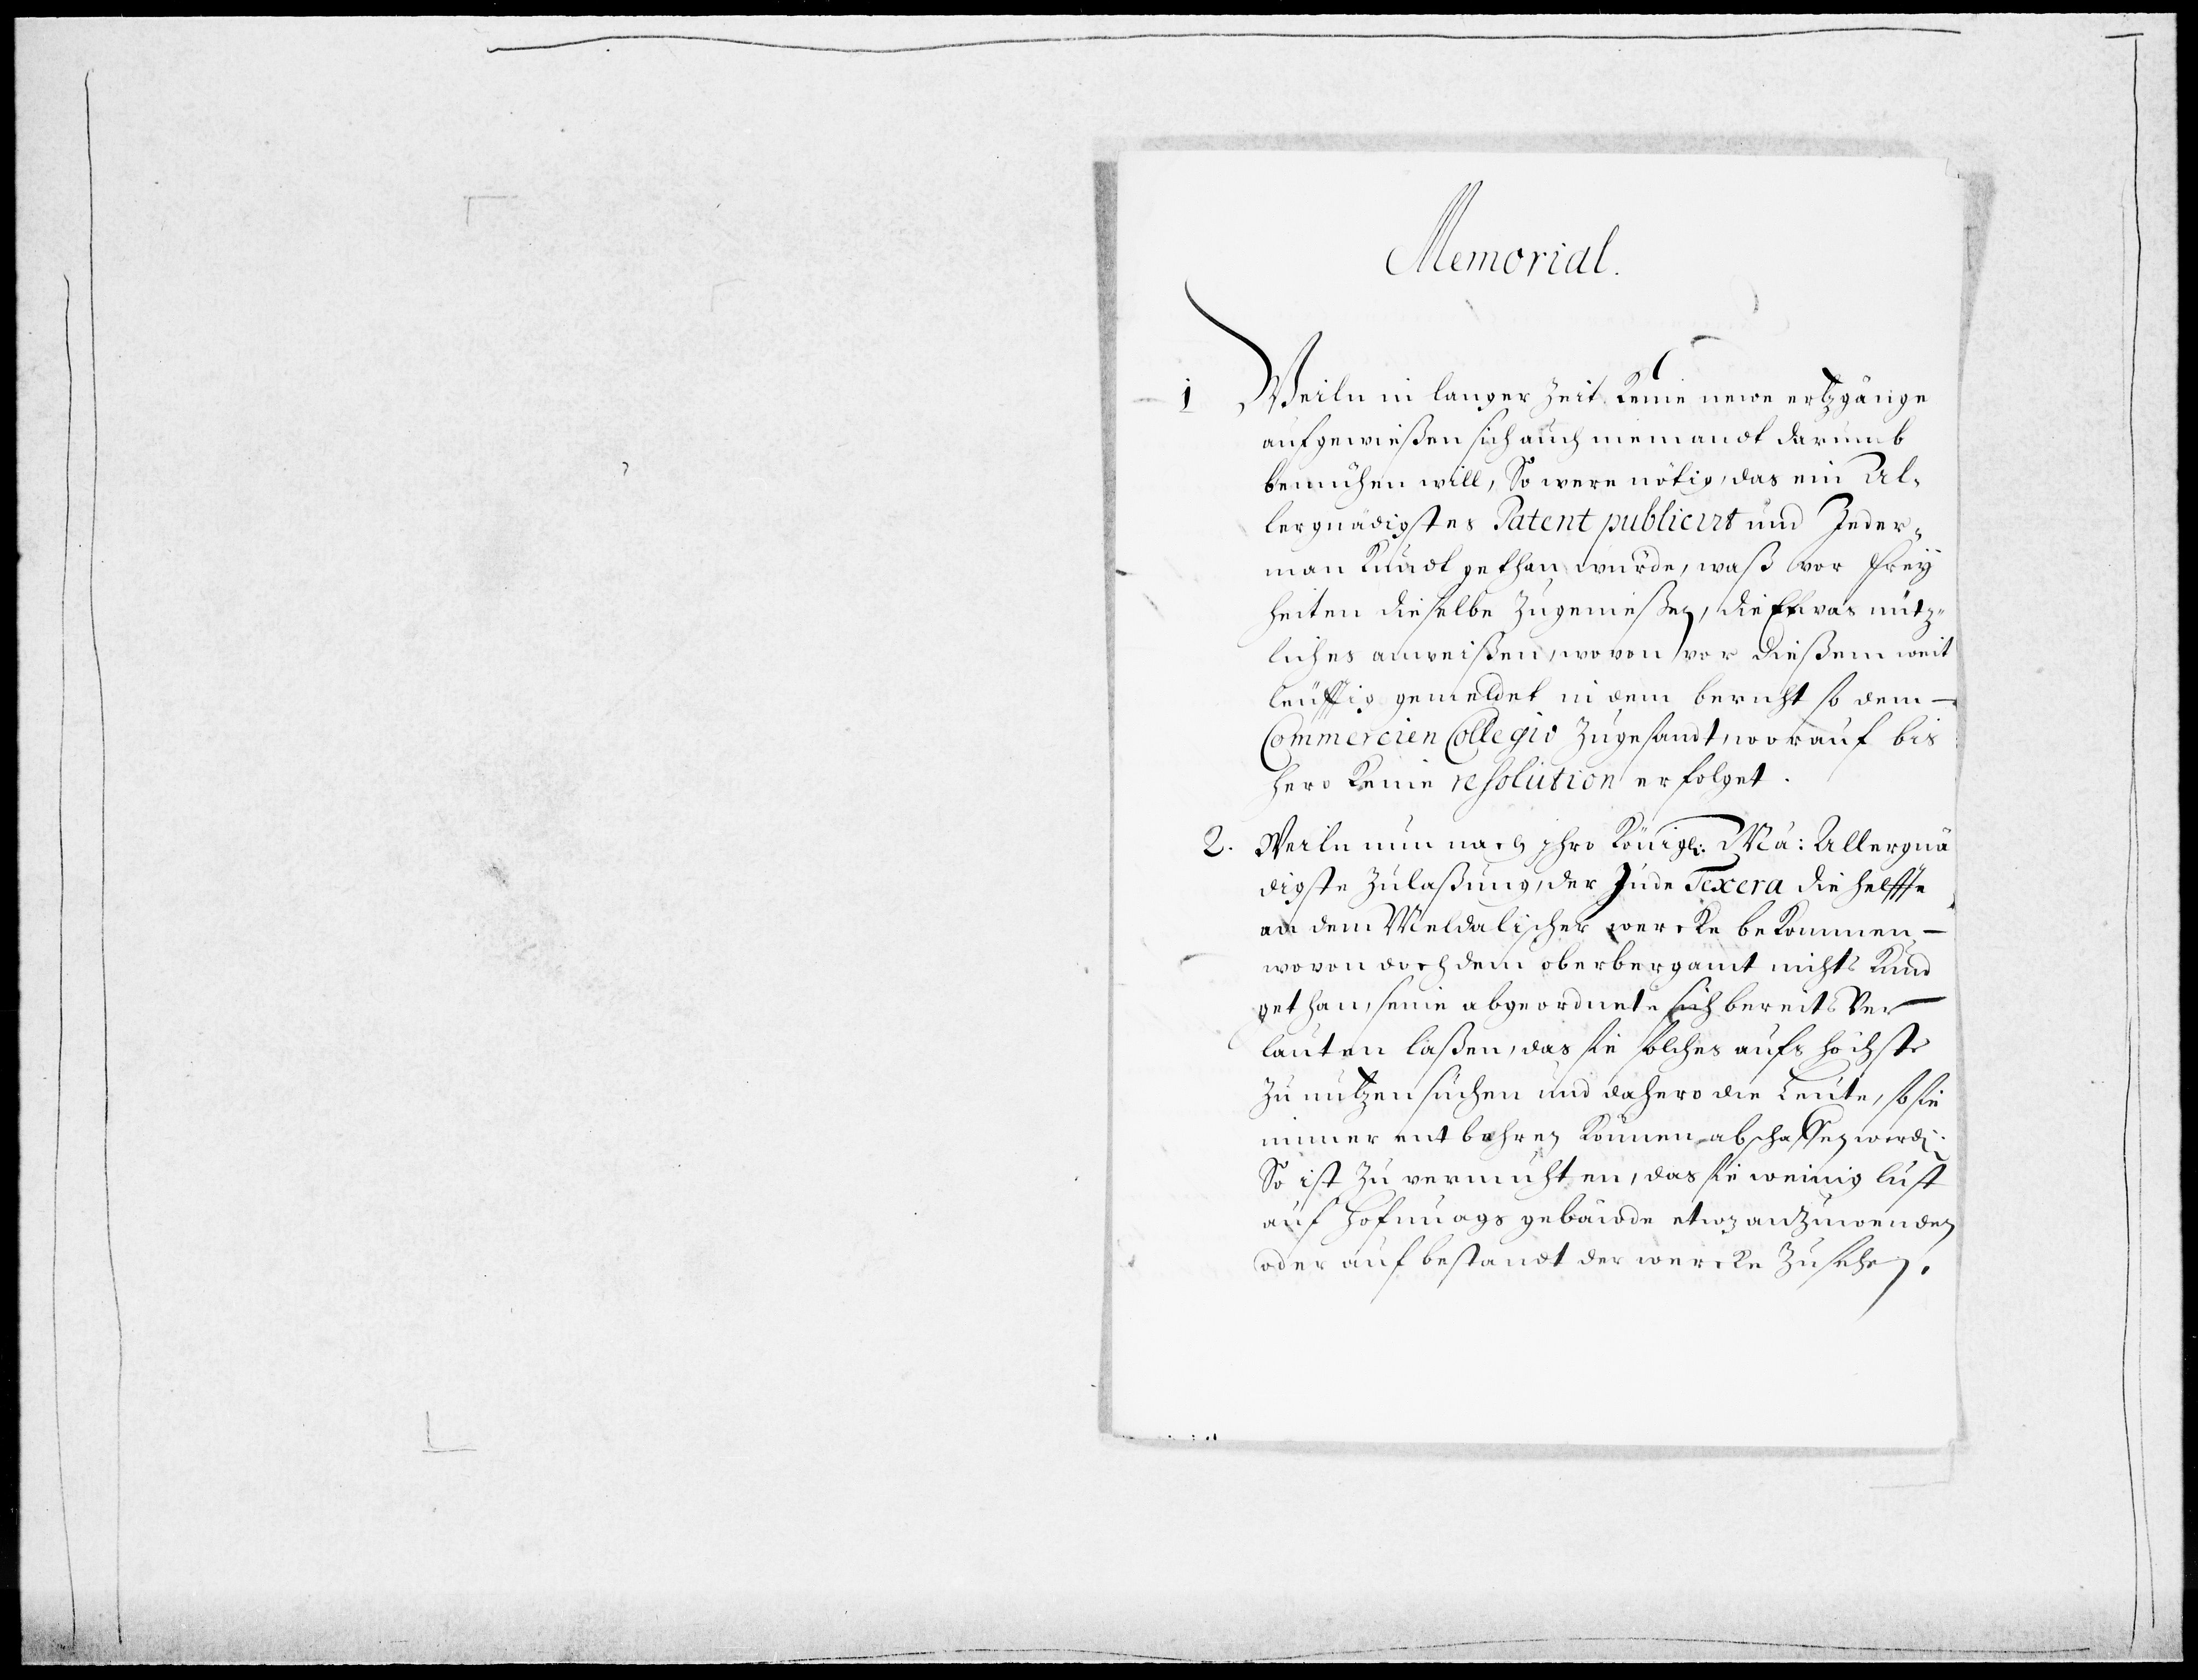 Memorial.
1 Weiln in langer Zeit keine newe ertzgänge
aufgewießen sich auch niemandt darumb
bemühen will, So were nötig, das ein Al-
lergnädigstes Patent publicirt und Jeder-
man Kundt gethan würde, waß vor frey
heiten dieselbe Zugenießen, die Etwas nütz-
liches anweißen, wovon vor dießem weit
leufftig gemeldet in dem bericht so dem
Commercien Collegio Zugesandt, worauf bis
hero keine resolution erfolget.
2. Weiln nun nach Ihro Königl: Ma: Allergnä
digste Zulaßung, der Jude Texera die helffte
an dem Meldalischer wercke bekommen
wovon doch dem oberbergamt nichts Kund
gethan, seine abgeordnete sich bereits Ver
lauten laßen, das sie solches aufs höchste
Zu nutzen suchen und dahero die Leute, so sie
immer entbehren können abschaffen werd:
So ist Zu vermuhten, das sie weinig lust
auf hofnungs gebäude etwz anzuwenden
oder auf bestandt der wercke Zu sehen.